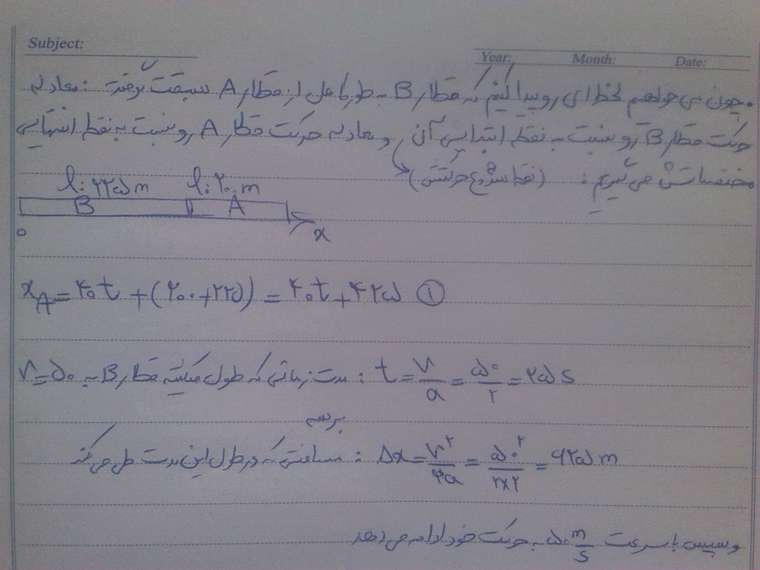 Subject:
Year: Month: Date:
چون می خواهیم لحظه ای رو پیدا کنیم که قطار B به طور کامل از قطار A سبقت گرفته : معادله
حرکت قطار B رو نسبت به نقطه ابتدایی آن و معادله حرکت قطار A رو نسبت به نقطه انتهایی
مختصاتش می گیریم : (نقطه شروع حرکتش)
l: ۲۲۵ m l: ۲۰۰ m
B A
o x
x_A = ۴۰t + (۲۰۰+۲۲۵) = ۴۰t + ۴۲۵ ①
مدت زمانی که طول میکشه قطار B به v=۵۰ : t = v/a = ۵۰/۲ = ۲۵ s
برسه
مسافتی که در طول این مدت طی می کند : Δx = v²/۲a = ۵۰²/۲×۲ = ۶۲۵ m
و سپس با سرعت ۵۰ m/s به حرکت خود ادامه می دهد